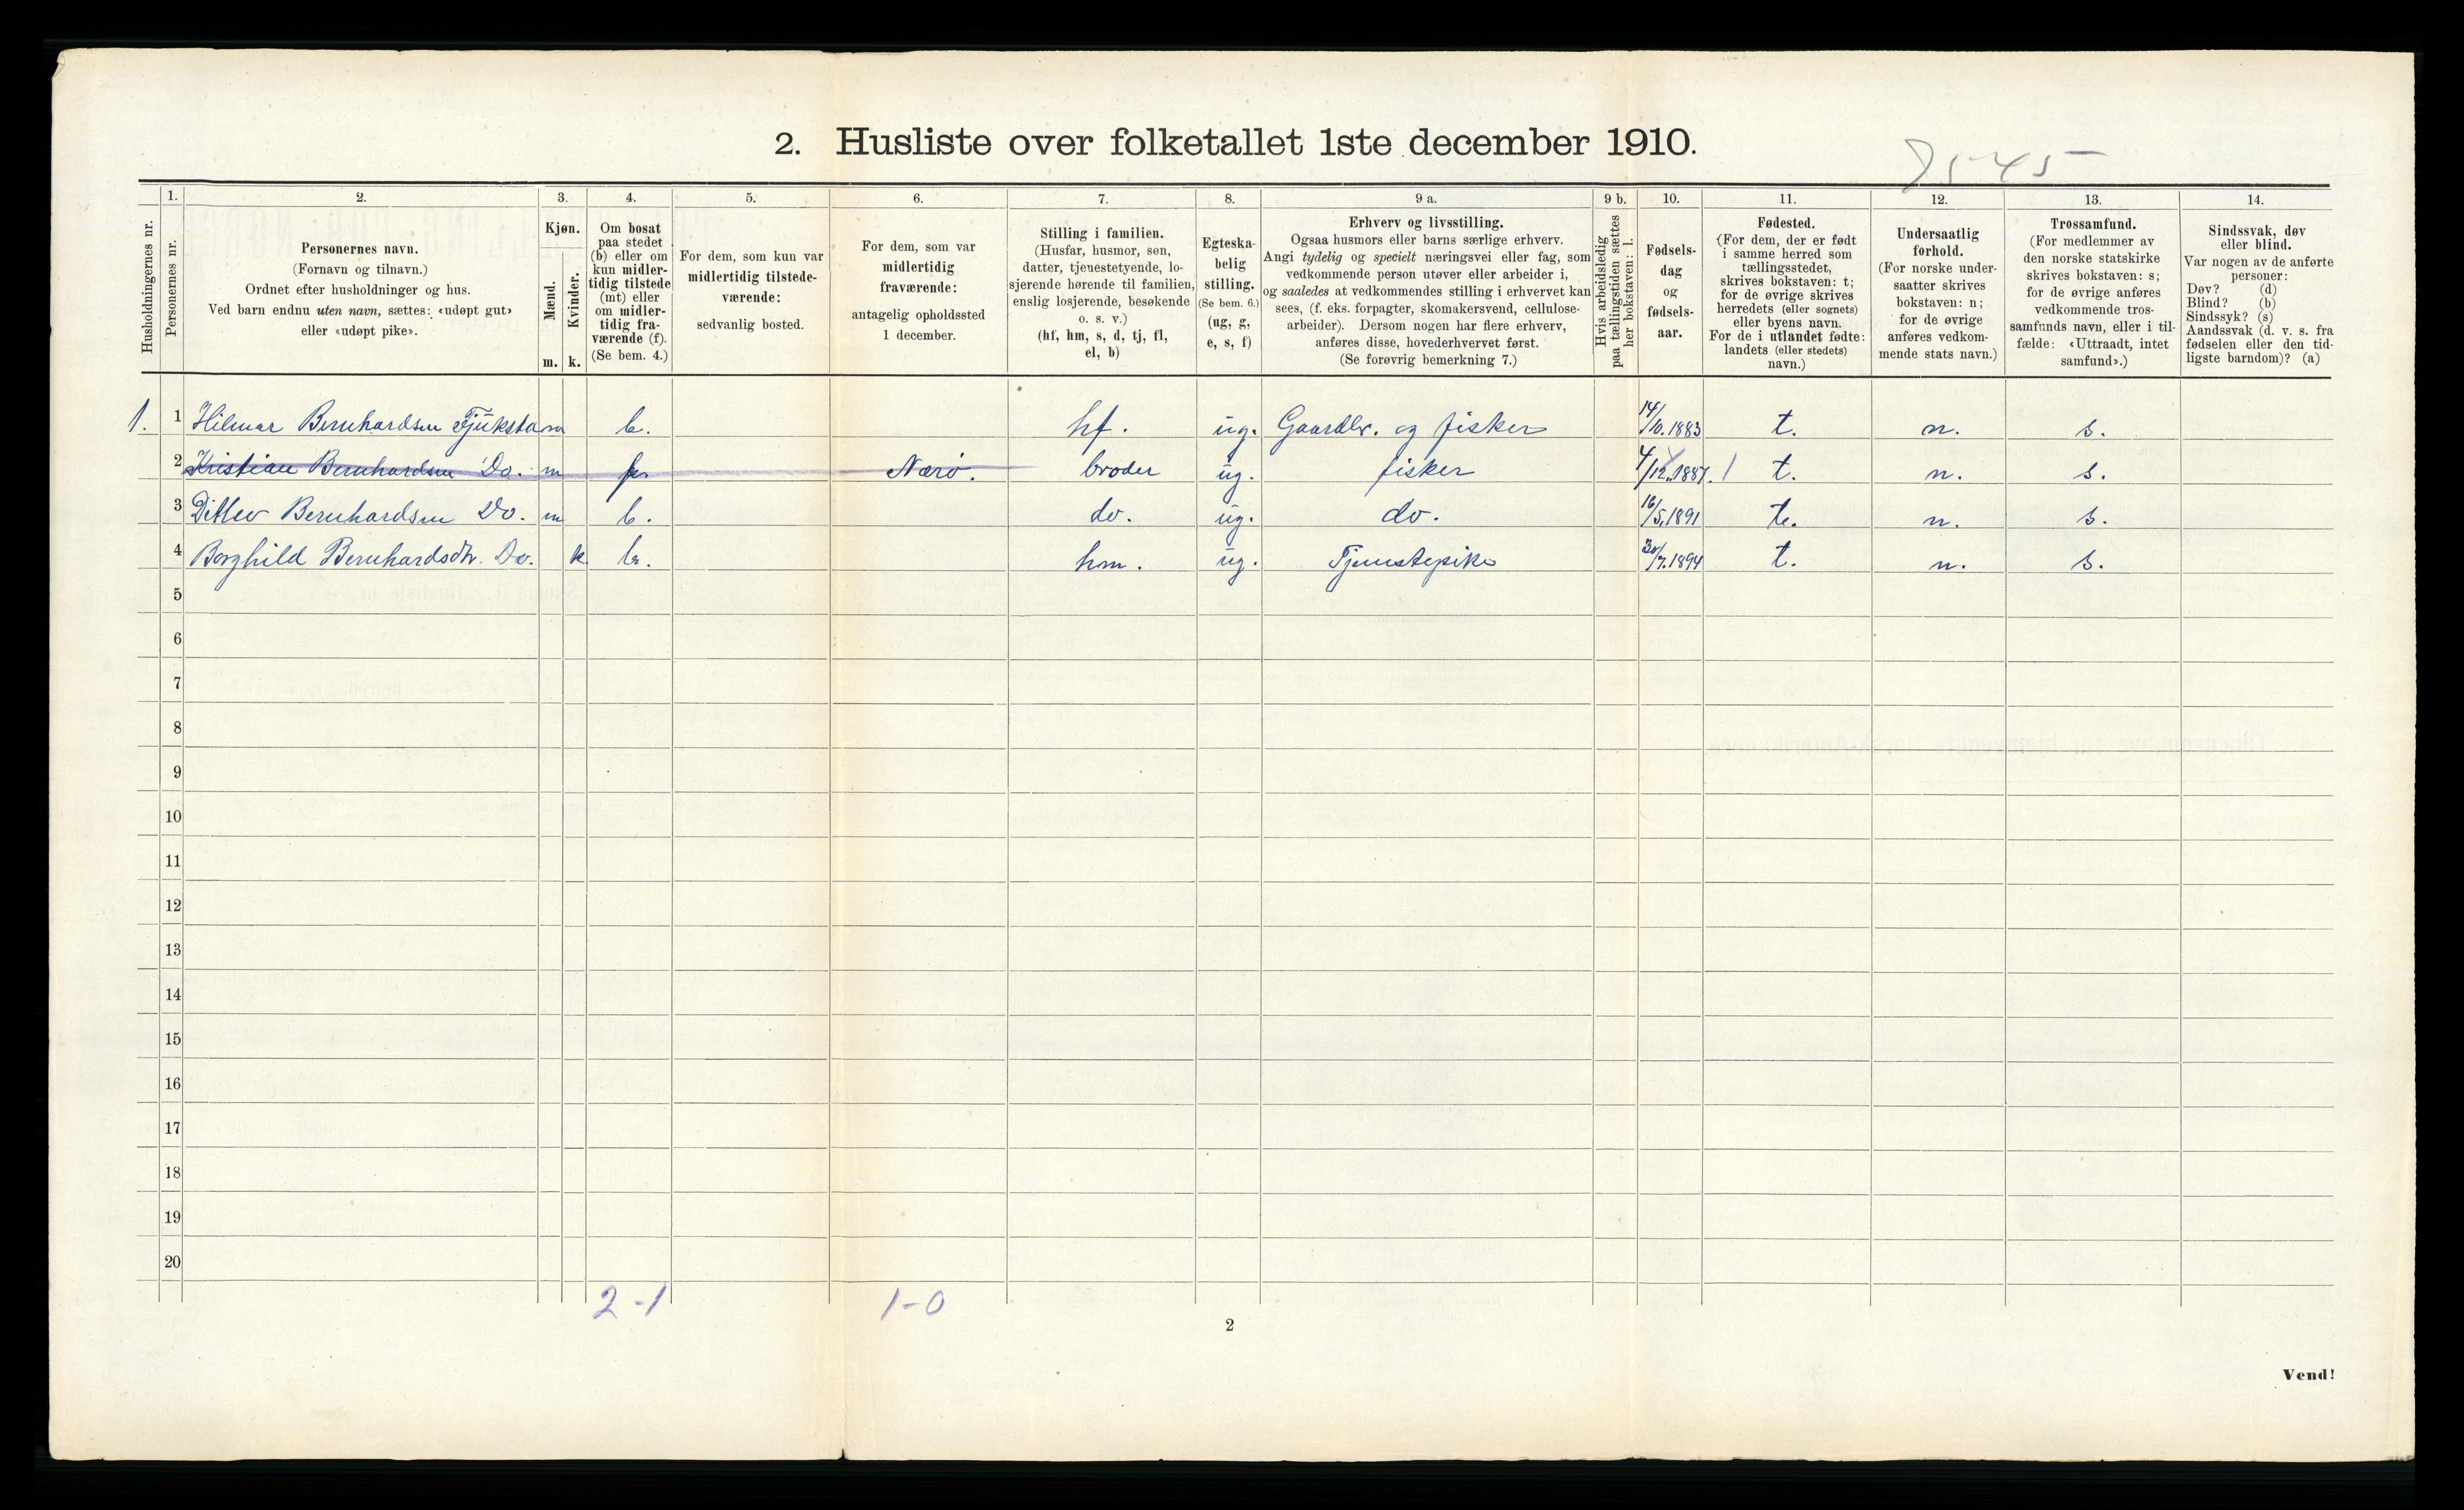 2. Husliste over folketallet 1ste december 1910.
Husholdningernes nr.
1.
Personernes nr.
2.
Personernes navn.
(Fornavn og tilnavn.)
Ordnet efter husholdninger og hus.
Ved barn endnu uten navn, sættes: «udøpt gut»
eller «udøpt pike».
3.
Kjøn.
Mænd.
Kvinder.
m. k.
4.
Om bosat
paa stedet
(b) eller om
kun midler-
tidig tilstede
(mt) eller
om midler-
tidig fra-
værende (f).
(Se bem. 4.)
5.
For dem, som kun var
midlertidig tilstede-
værende:
sedvanlig bosted.
6.
For dem, som var
midlertidig
fraværende:
antagelig opholdssted
1 december.
7.
Stilling i familien.
(Husfar, husmor, søn,
datter, tjenestetyende, lo-
sjerende hørende til familien,
enslig losjerende, besøkende
o. s. v.)
(hf, hm, s, d, tj, fl,
el, b)
8.
Egteska-
belig
stilling.
(Se bem. 6.)
(ug, g,
e, s, f)
9 a.
Erhverv og livsstilling.
Ogsaa husmors eller barns særlige erhverv.
Angi tydelig og specielt næringsvei eller fag, som
vedkommende person utøver eller arbeider i,
og saaledes at vedkommendes stilling i erhvervet kan
sees, (f. eks. forpagter, skomakersvend, cellulose-
arbeider). Dersom nogen har flere erhverv,
anføres disse, hovederhvervet først.
(Se forøvrig bemerkning 7.)
9 b.
Hvis arbeidsledig
paa tællingstiden sættes
her bokstaven: l.
10.
Fødsels-
dag
og
fødsels-
aar.
11.
Fødested.
(For dem, der er født
i samme herred som
tællingsstedet,
skrives bokstaven: t;
for de øvrige skrives
herredets (eller sognets)
eller byens navn.
For de i utlandet fødte:
landets (eller stedets)
navn.)
12.
Undersaatlig
forhold.
(For norske under-
saatter skrives
bokstaven: n;
for de øvrige
anføres vedkom-
mende stats navn.)
13.
Trossamfund.
(For medlemmer av
den norske statskirke
skrives bokstaven: s;
for de øvrige anføres
vedkommende tros-
samfunds navn, eller i til-
fælde: «Uttraadt, intet
samfund».)
14.
Sindssvak, døv
eller blind.
Var nogen av de anførte
personer:
Døv? (d)
Blind? (b)
Sindssyk? (s)
Aandssvak (d. v. s. fra
fødselen eller den tid-
ligste barndom)? (a)
1. 1 Hilmar Bernhardsen m b. hf. ug. Gaardbr. og fisker 14/10.1883 t. n. s.
2 Kristian Bernhardsen Do. m Nærø. broder ug. fisker 4/12.1887. t. n. s.
3 Ditlev Bernhardsen Do. m b. do. ug. do. 16/5.1891 t. n. s.
4 Borghild Bernhardsdtr. Do. k b. hm. ug. Tjenestepike 30/7.1894 t. n. s.
5
6
7
8
9
10
11
12
13
14
15
16
17
18
19
20
2-1 1-0
2
Vend!